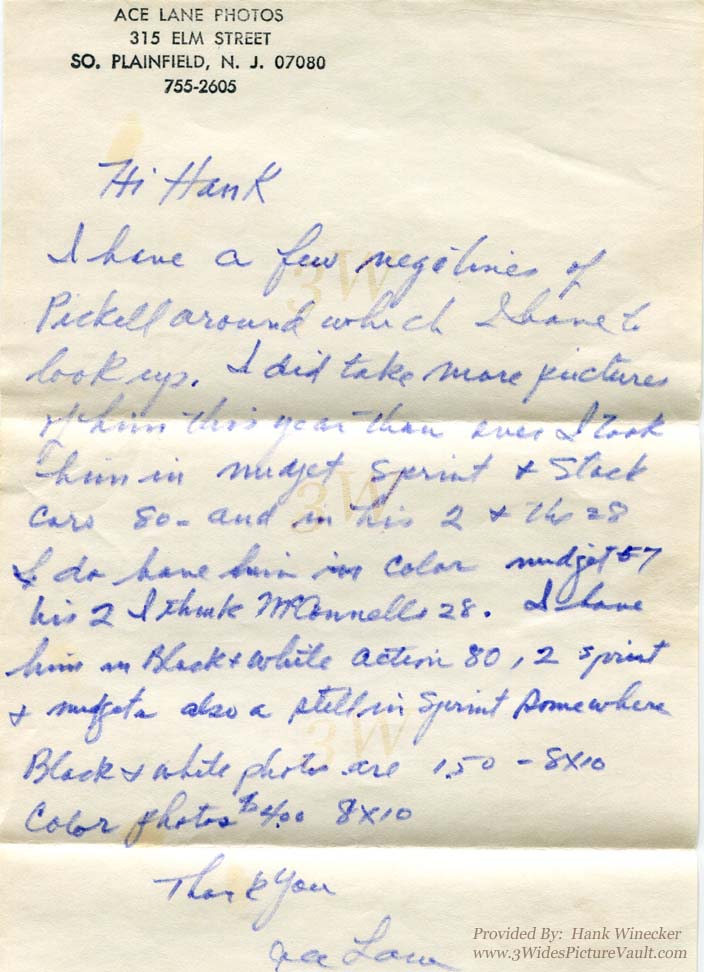 ACE LANE PHOTOS
315 ELM STREET
SO. PLAINFIELD, N. J. 07080
755-2605
Hi Hank
I have a few negitives of
Pickell around which I have to
look up. I did take more pictures
of him this year than ever I took
him in midget Sprint + Stock
Cars 80 - and in his 2 + the 28
I do have him in Color midget 57
his 2 I think McConnells 28. I have
him in Black + white action 80, 2 sprint
+ midgets also a still in Sprint somewhere
Black + white photos are 1.50 - 8X10
Color photos $4.00 8X10
Thank You
Ace Lane
3W
3W
3W
Provided By: Hank Winecker
www.3WidesPictureVault.com